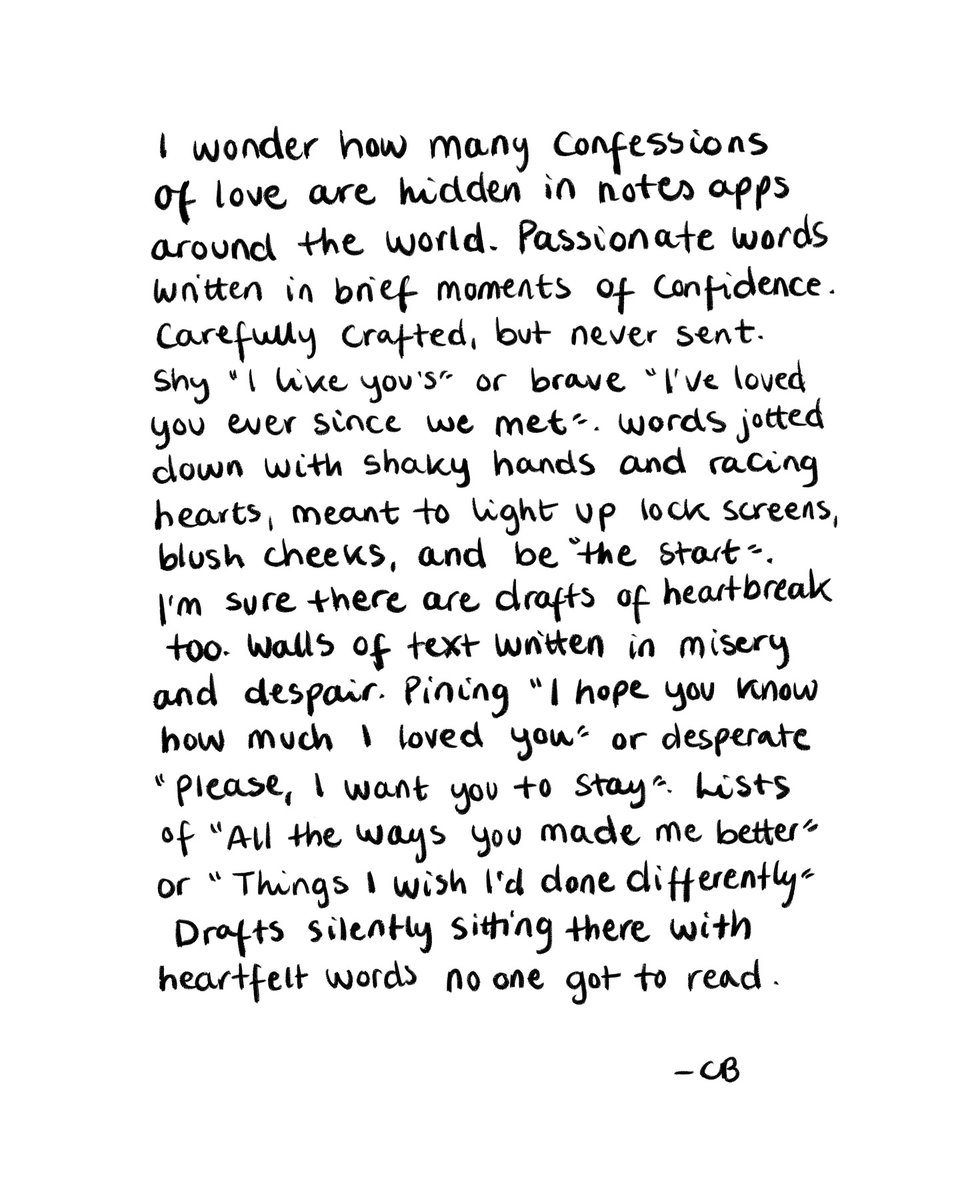 I wonder how many confessions
of love are hidden in notes apps
around the world. Passionate words
written in brief moments of confidence.
Carefully crafted, but never sent.
Shy "I like you's" or brave "I've loved
you ever since we met". Words jotted
down with shaky hands and racing
hearts, meant to light up lock screens,
blush cheeks, and be "the start".
I'm sure there are drafts of heartbreak
too. Walls of text written in misery
and despair. Pining "I hope you know
how much I loved you" or desperate
"Please, I want you to stay". Lists
of "All the ways you made me better"
or "Things I wish I'd done differently"
Drafts silently sitting there with
heartfelt words no one got to read.
– CB